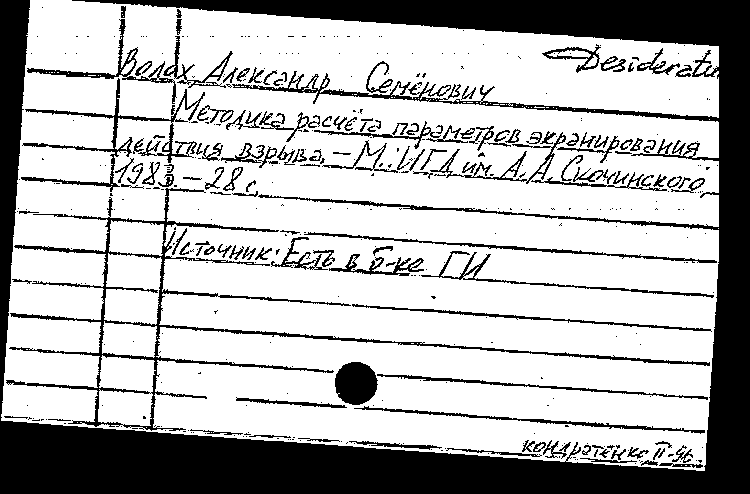 Desideratu
Валах, Александр Семёнович
Методика расчёта параметров экранирования
действия взрыва. – М.: ИГД им. А.А. Скочинского,
1983. – 28 с.
Источник: Есть в Б-ке ГИ
кондратенко II-96.